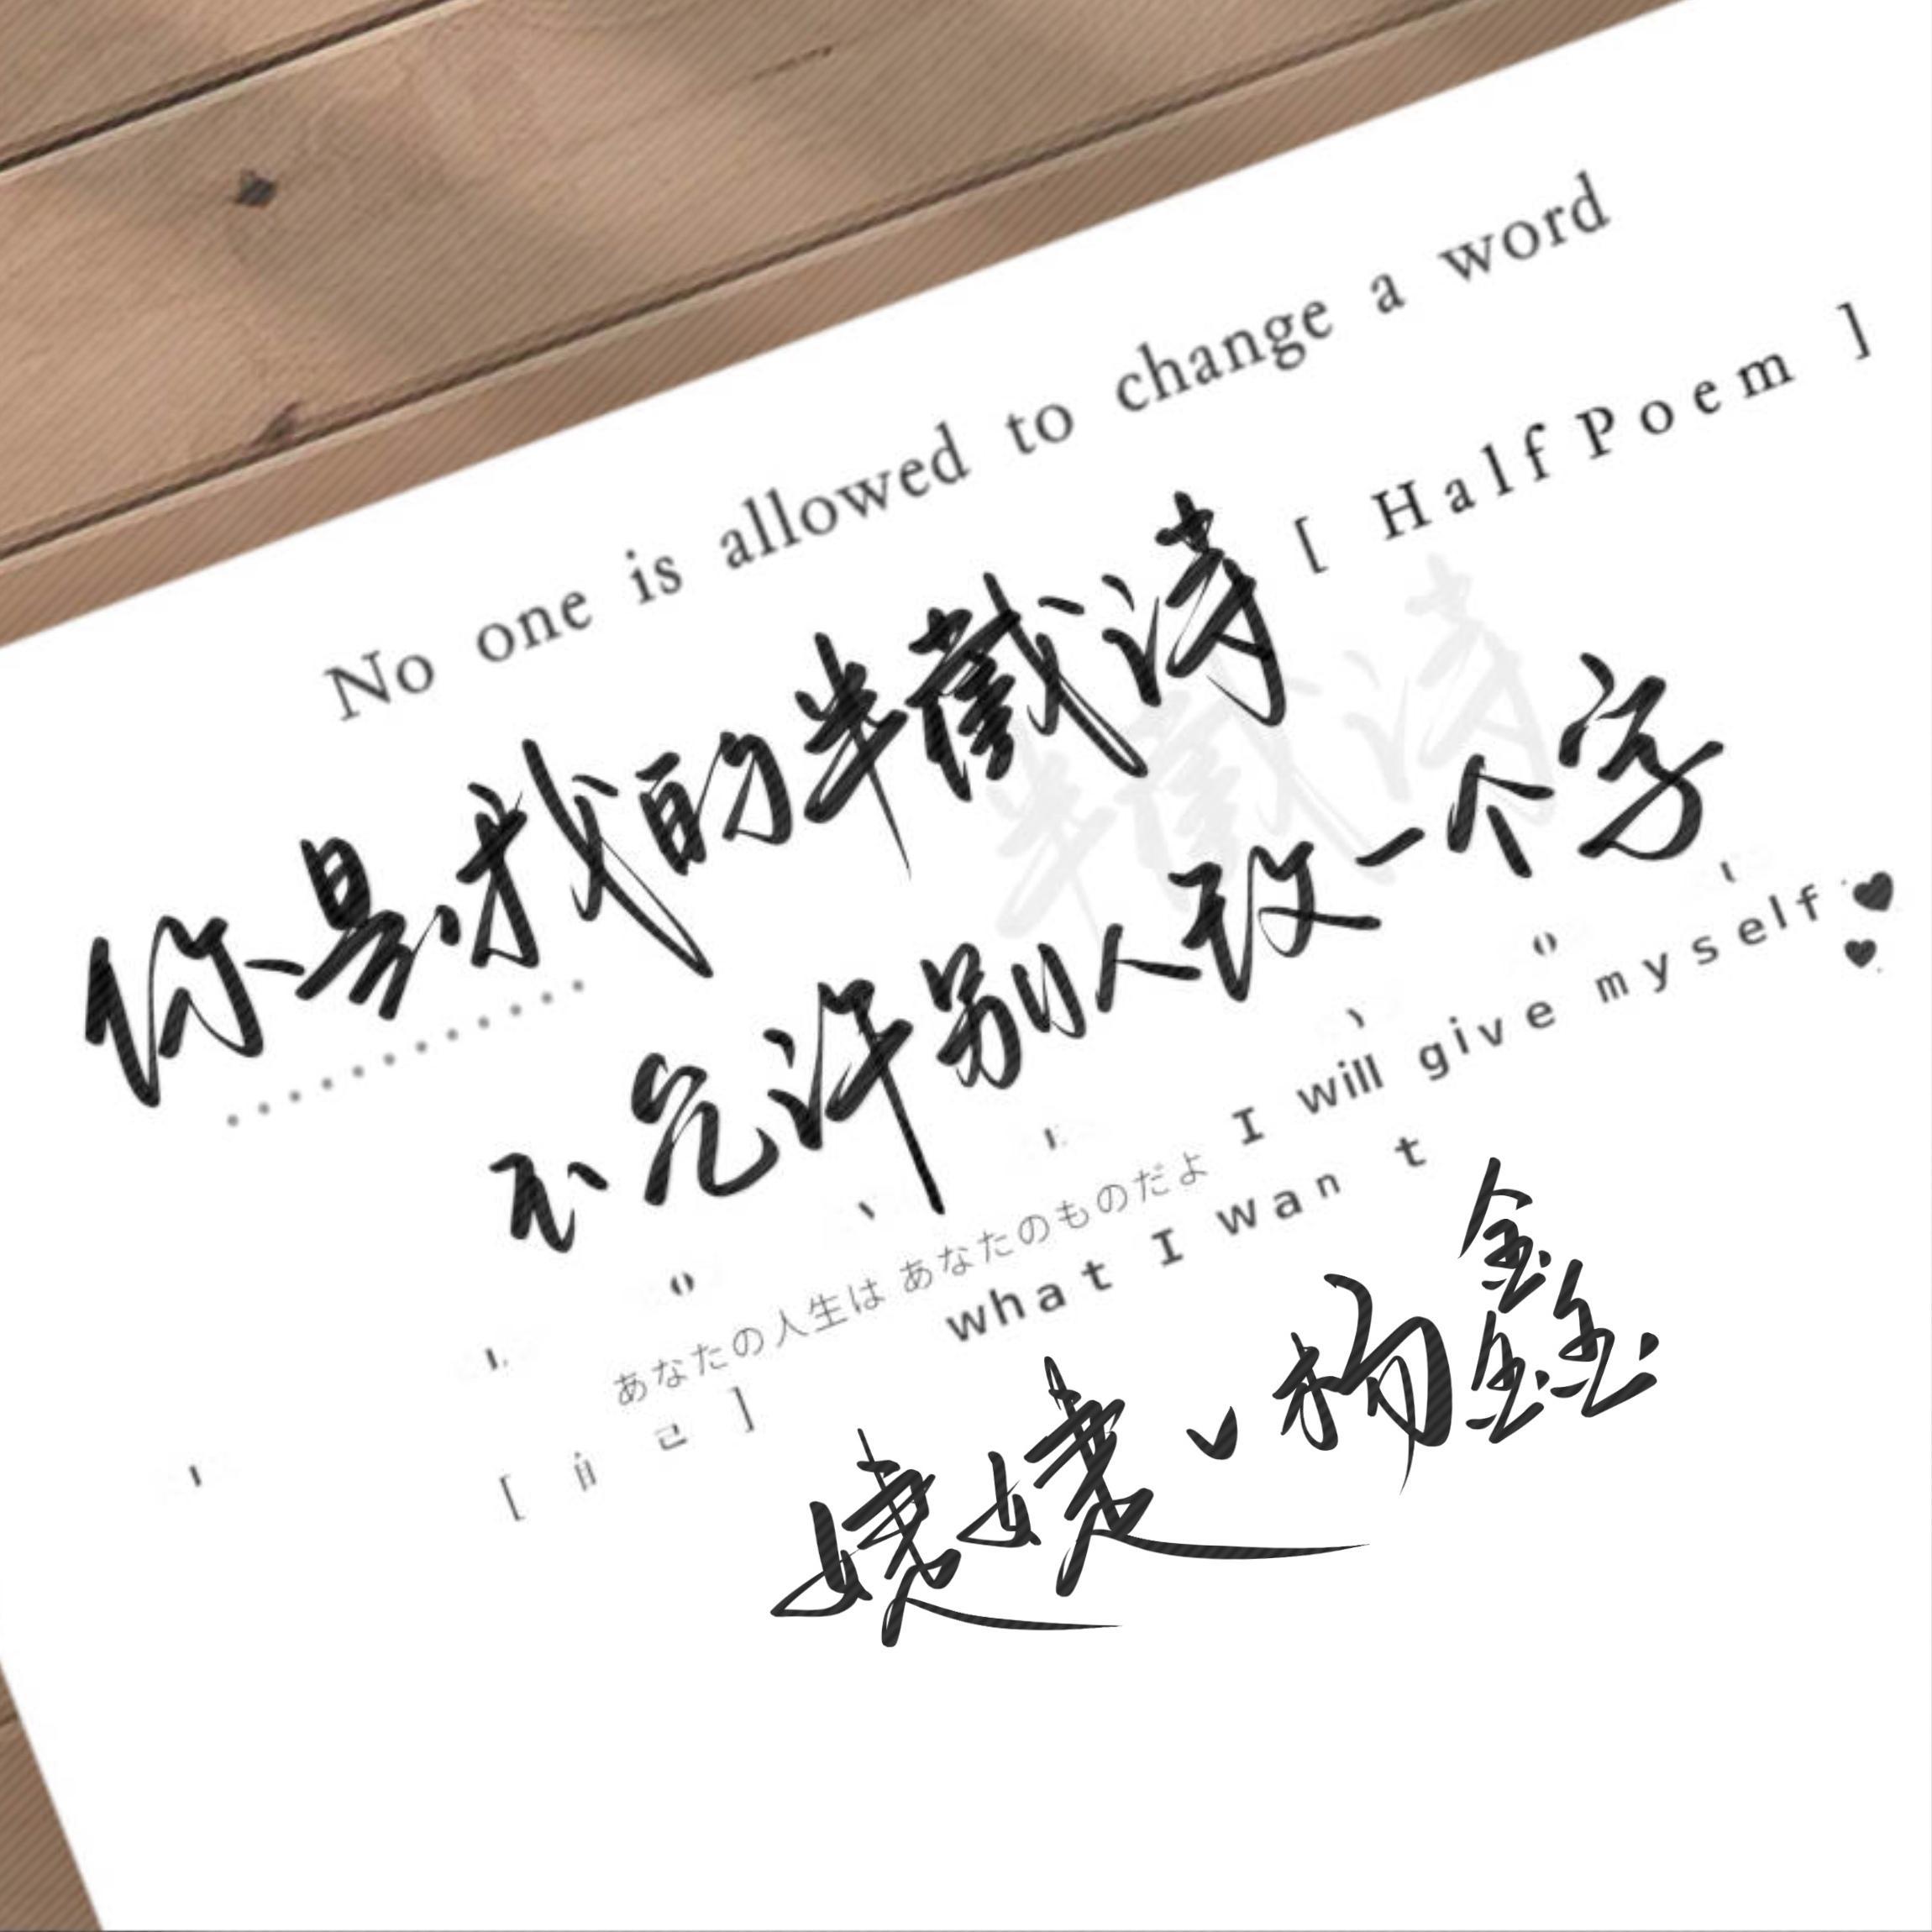 No one is allowed to change a word
[ HalfPoem ]
你是我的半截诗
半截诗
不允许别人改一个字
I will give myself
あなたの人生は あなたのものだよ
what I want
婕婕、杨鑫